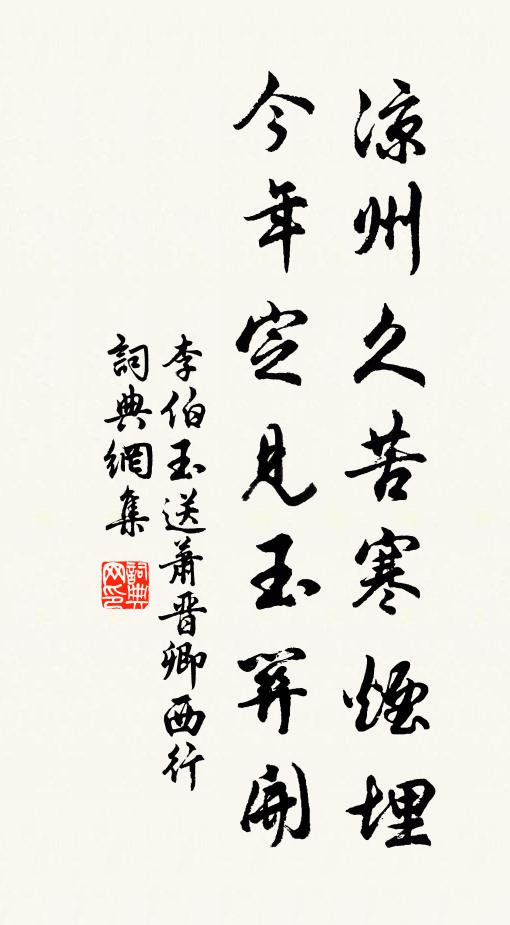 涼州久苦寒煙埋
今年定見玉關開
李伯玉送蕭晉卿西行
詞典網集
詞典网印